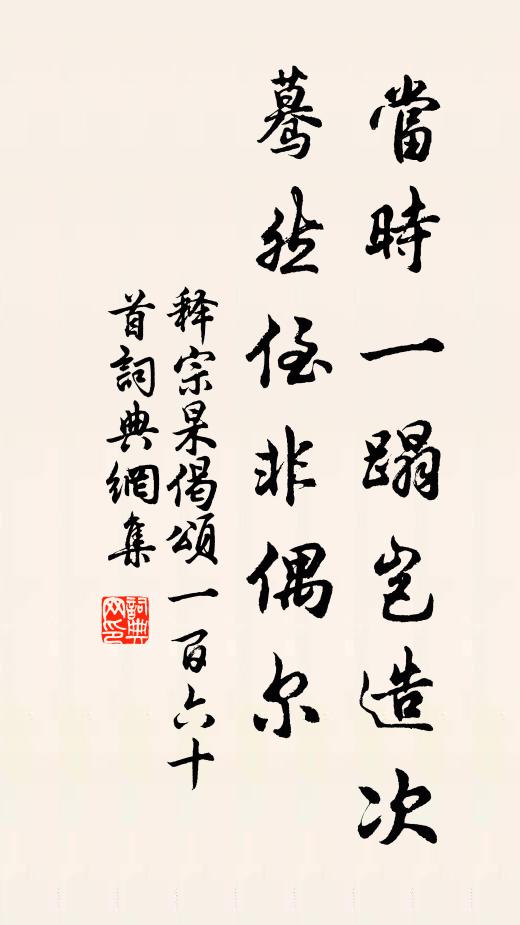 當時一蹋豈造次
驀然侄非偶尔
释宗杲偈頌一百六十
首詞典網集
詞典网印